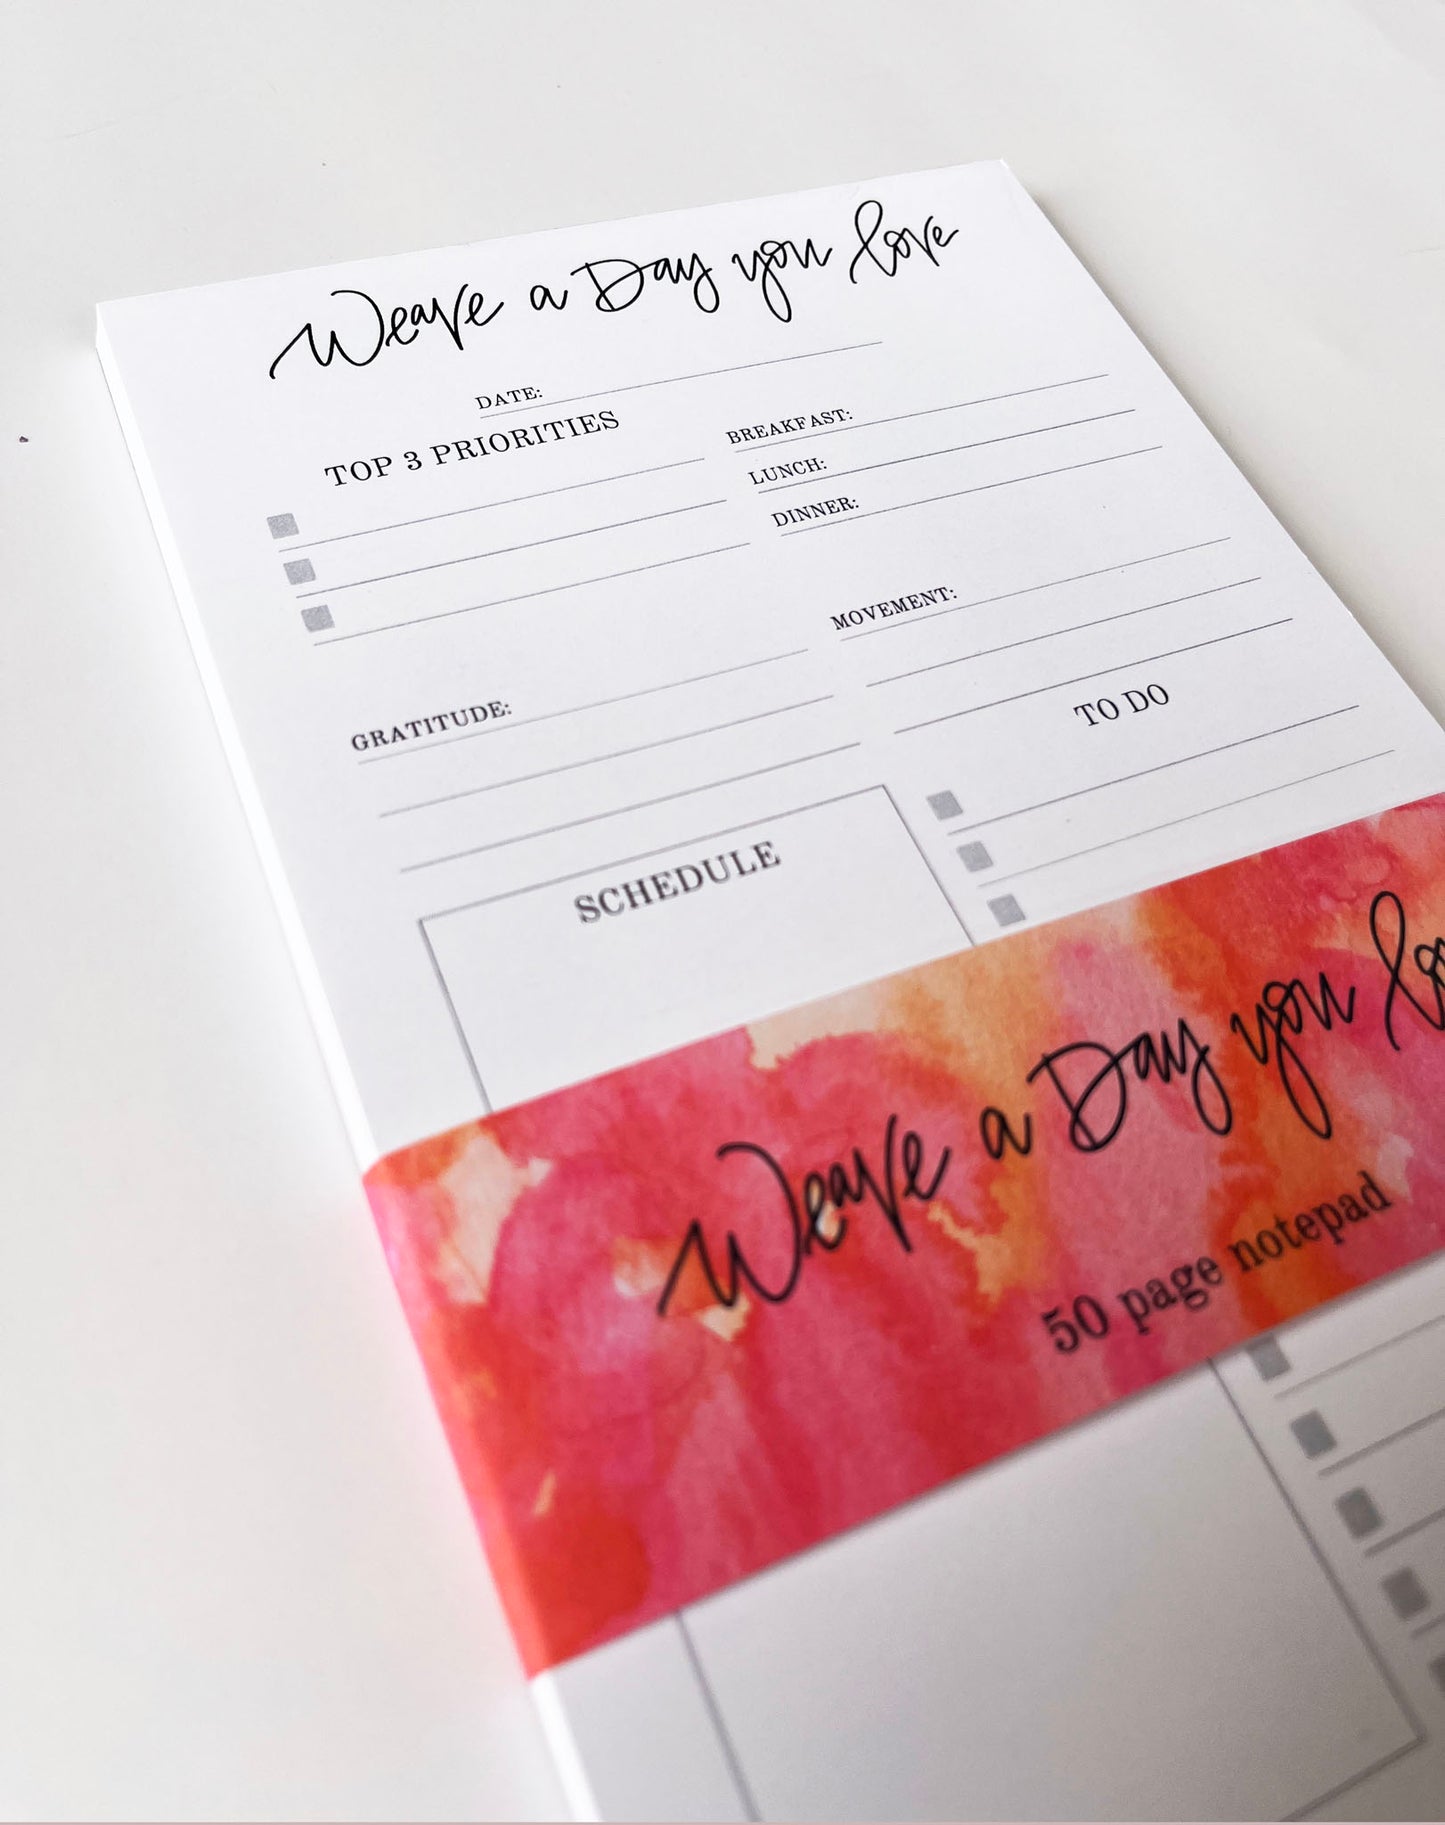 Weave a Day you love
DATE:
TOP 3 PRIORITIES
BREAKFAST:
LUNCH:
DINNER:
MOVEMENT:
GRATITUDE:
TO DO
SCHEDULE
Weave a Day you lo
50 page notepad